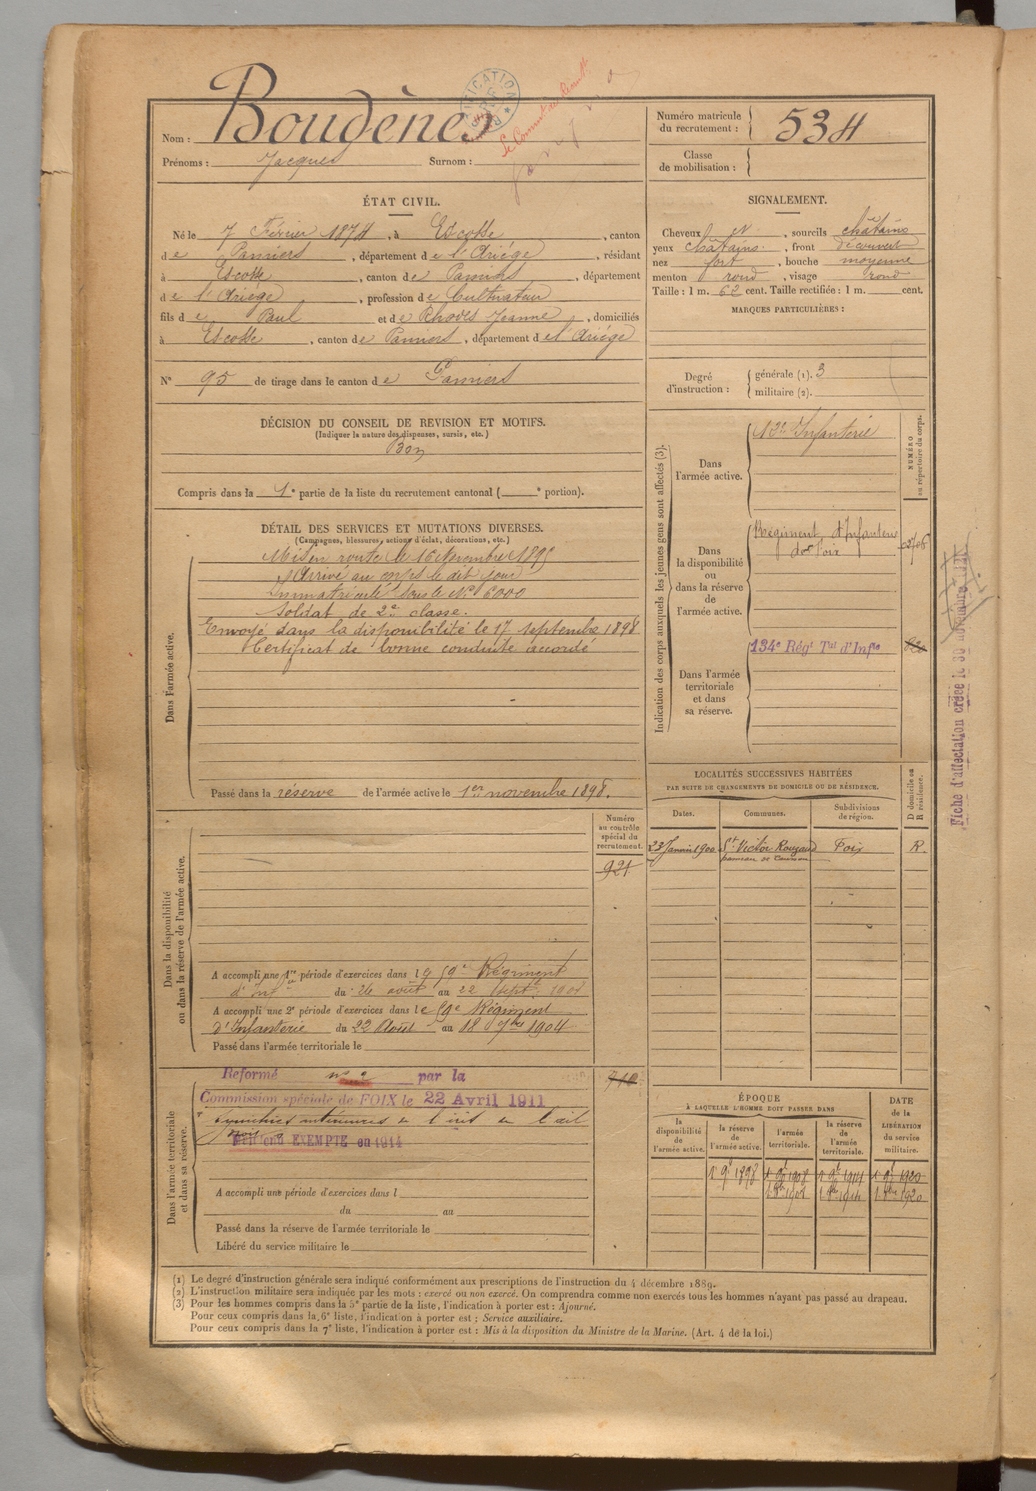 Nom : Boudènes
Prénoms : Jacques Surnom :
ÉTAT CIVIL.
Né le 7 Février 1874, à Escosse, canton
de Pamiers, département de l'Ariége, résidant
à Escosse, canton de Pamiers, département
de l'Ariége, profession de Cultivateur
fils de Paul et de Rhodes Jeanne, domiciliés
à Escosse, canton de Pamiers, département de l'Ariége
N° 95 de tirage dans le canton de Pamiers
DÉCISION DU CONSEIL DE REVISION ET MOTIFS.
(Indiquer la nature des dispenses, sursis, etc.)
Bon
Compris dans la 1e partie de la liste du recrutement cantonal ( e portion).
DÉTAIL DES SERVICES ET MUTATIONS DIVERSES.
(Campagnes, blessures, actions d'éclat, décorations, etc.)
Dans l'armée active.
Mis en route le 16 Novembre 1895
Arrivé au corps le dit jour
Immatriculé sous le N° 6000
Soldat de 2e classe.
Envoyé dans la disponibilité le 17 septembre 1898
Certificat de bonne conduite accordé
Passé dans la réserve de l'armée active le 1er novembre 1898.
Dans la disponibilité
ou dans la réserve de l'armée active.
Numéro
au contrôle
spécial du
recrutement.
921
A accompli une 1re période d'exercices dans le 59e Régiment
d'Inf du 26 août au 22 Sept.
A accompli une 2e période d'exercices dans le 59e Régiment
d'Infanterie du 22 Août au 18 7bre 1904
Passé dans l'armée territoriale le
Dans l'armée territoriale
et dans sa réserve.
Reformé n° 2 par la
Commission spéciale de FOIX le 22 Avril 1911
EXEMPTE en 1914
A accompli une période d'exercices dans l
du au
Passé dans la réserve de l'armée territoriale le
Libéré du service militaire le
Numéro matricule
du recrutement : 534
Classe
de mobilisation :
SIGNALEMENT.
Cheveux et, sourcils châtains
yeux châtains, front découvert
nez fort, bouche moyenne
menton rond, visage rond
Taille : 1 m. 62 cent. Taille rectifiée : 1 m. cent.
MARQUES PARTICULIÈRES :
Degré
d'instruction :
générale (1). 3
militaire (2).
Indication des corps auxquels les jeunes gens sont affectés (3).
NUMÉRO
au répertoire du corps.
Dans
l'armée active.
Infanterie
Dans
la disponibilité
ou
dans la réserve
de
l'armée active.
Régiment d'Infanterie
de Foix
Dans l'armée
territoriale
et dans
sa réserve.
134e Régt Tal d'Infie
Fiche d'affectation créée le 30 novembre
LOCALITÉS SUCCESSIVES HABITÉES
PAR SUITE DE CHANGEMENTS DE DOMICILE OU DE RÉSIDENCE.
Dates. Communes. Subdivisions
de région.
D domicile ou
R résidence.
23 Janvier 1900 St Victor Rouzaud Foix R.
ÉPOQUE
À LAQUELLE L'HOMME DOIT PASSER DANS
DATE
de la
LIBÉRATION
du service
militaire.
la
disponibilité
de
l'armée active.
la réserve
de
l'armée active.
l'armée
territoriale.
la réserve
de
l'armée
territoriale.
(1) Le degré d'instruction générale sera indiqué conformément aux prescriptions de l'instruction du 4 décembre 1889.
(2) L'instruction militaire sera indiquée par les mots : exercé ou non exercé. On comprendra comme non exercés tous les hommes n'ayant pas passé au drapeau.
(3) Pour les hommes compris dans la 5e partie de la liste, l'indication à porter est : Ajourné.
Pour ceux compris dans la 6e liste, l'indication à porter est : Service auxiliaire.
Pour ceux compris dans la 7e liste, l'indication à porter est : Mis à la disposition du Ministre de la Marine. (Art. 4 de la loi.)